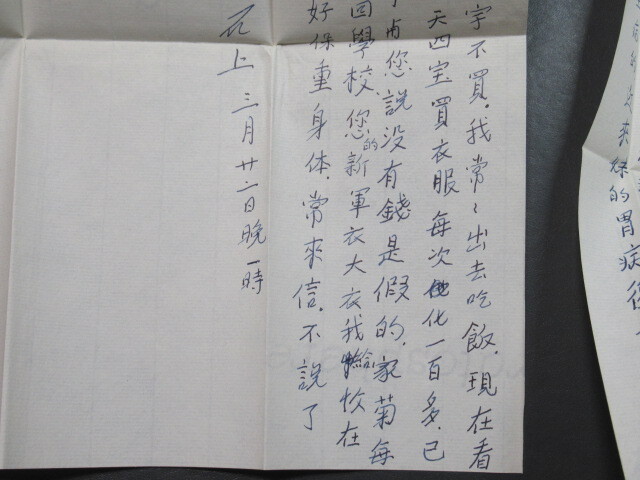 字不買。我常々出去吃飯。現在看
天四宝買衣服每次他化一百多.已
您說没有錢是假的.家菊每
回學校.您的新軍衣大衣我給放在
好保重身体.常來信.不說了
上 三月廿二日晚一時
來
的胃病